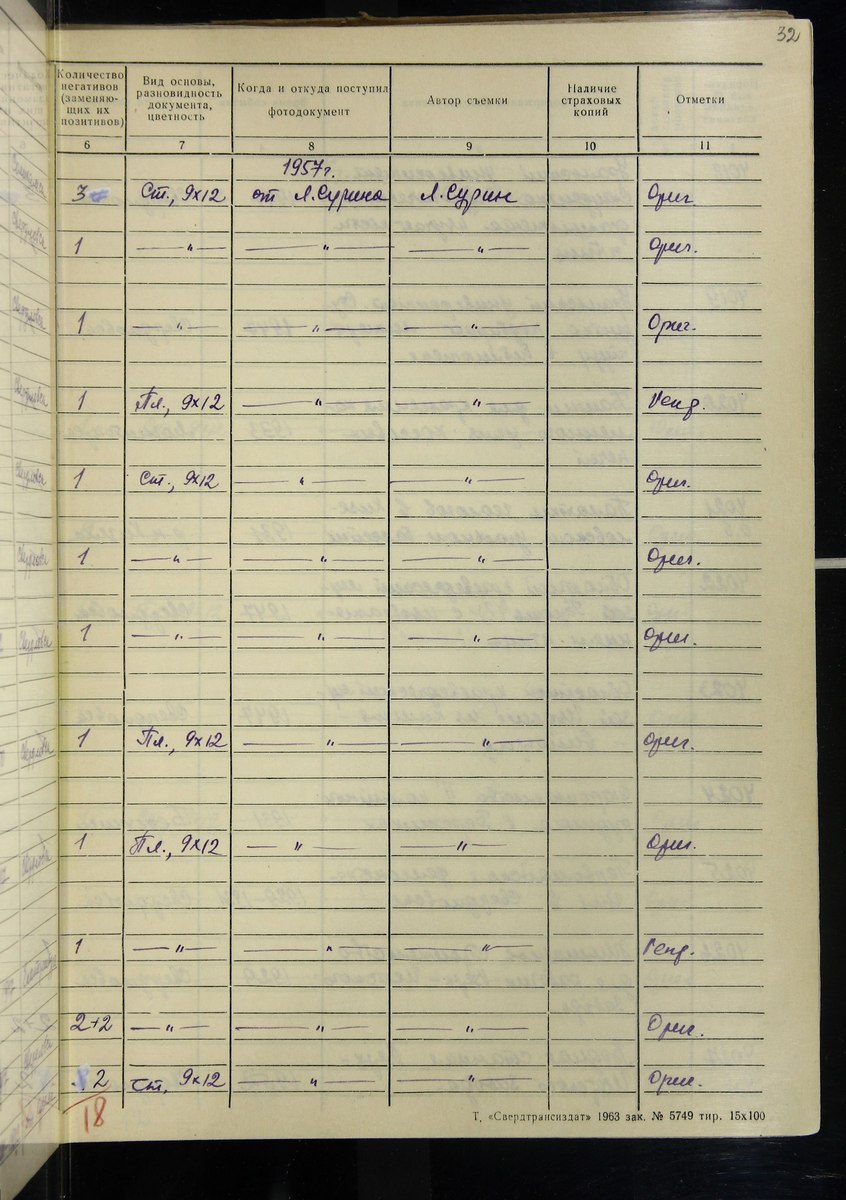 32
Количество негативов (заменяю- щих их позитивов) Вид основы, разновидность документа, цветность Когда и откуда поступил фотодокумент Автор съемки Наличие страховых копий Отметки
6 7 8 9 10 11
1957г.
3 Ст., 9х12 от Л.Сурина Л.Сурин Ориг.
1 — " — — " — — " — Ориг.
1 — " — — " — — " — Ориг.
1 Пл., 9х12 — " — — " — Репр.
1 Ст., 9х12 — " — — " — Ориг.
1 — " — — " — — " — Ориг.
1 — " — — " — — " — Ориг.
1 Пл., 9х12 — " — — " — Ориг.
1 Пл., 9х12 — " — — " — Ориг.
1 — " — — " — — " — Репр.
2+2 — " — — " — — " — Ориг.
2 Ст., 9х12 — " — — " — Ориг.
18
Т. «Свердтрансиздат» 1963 зак. № 5749 тир. 15х100